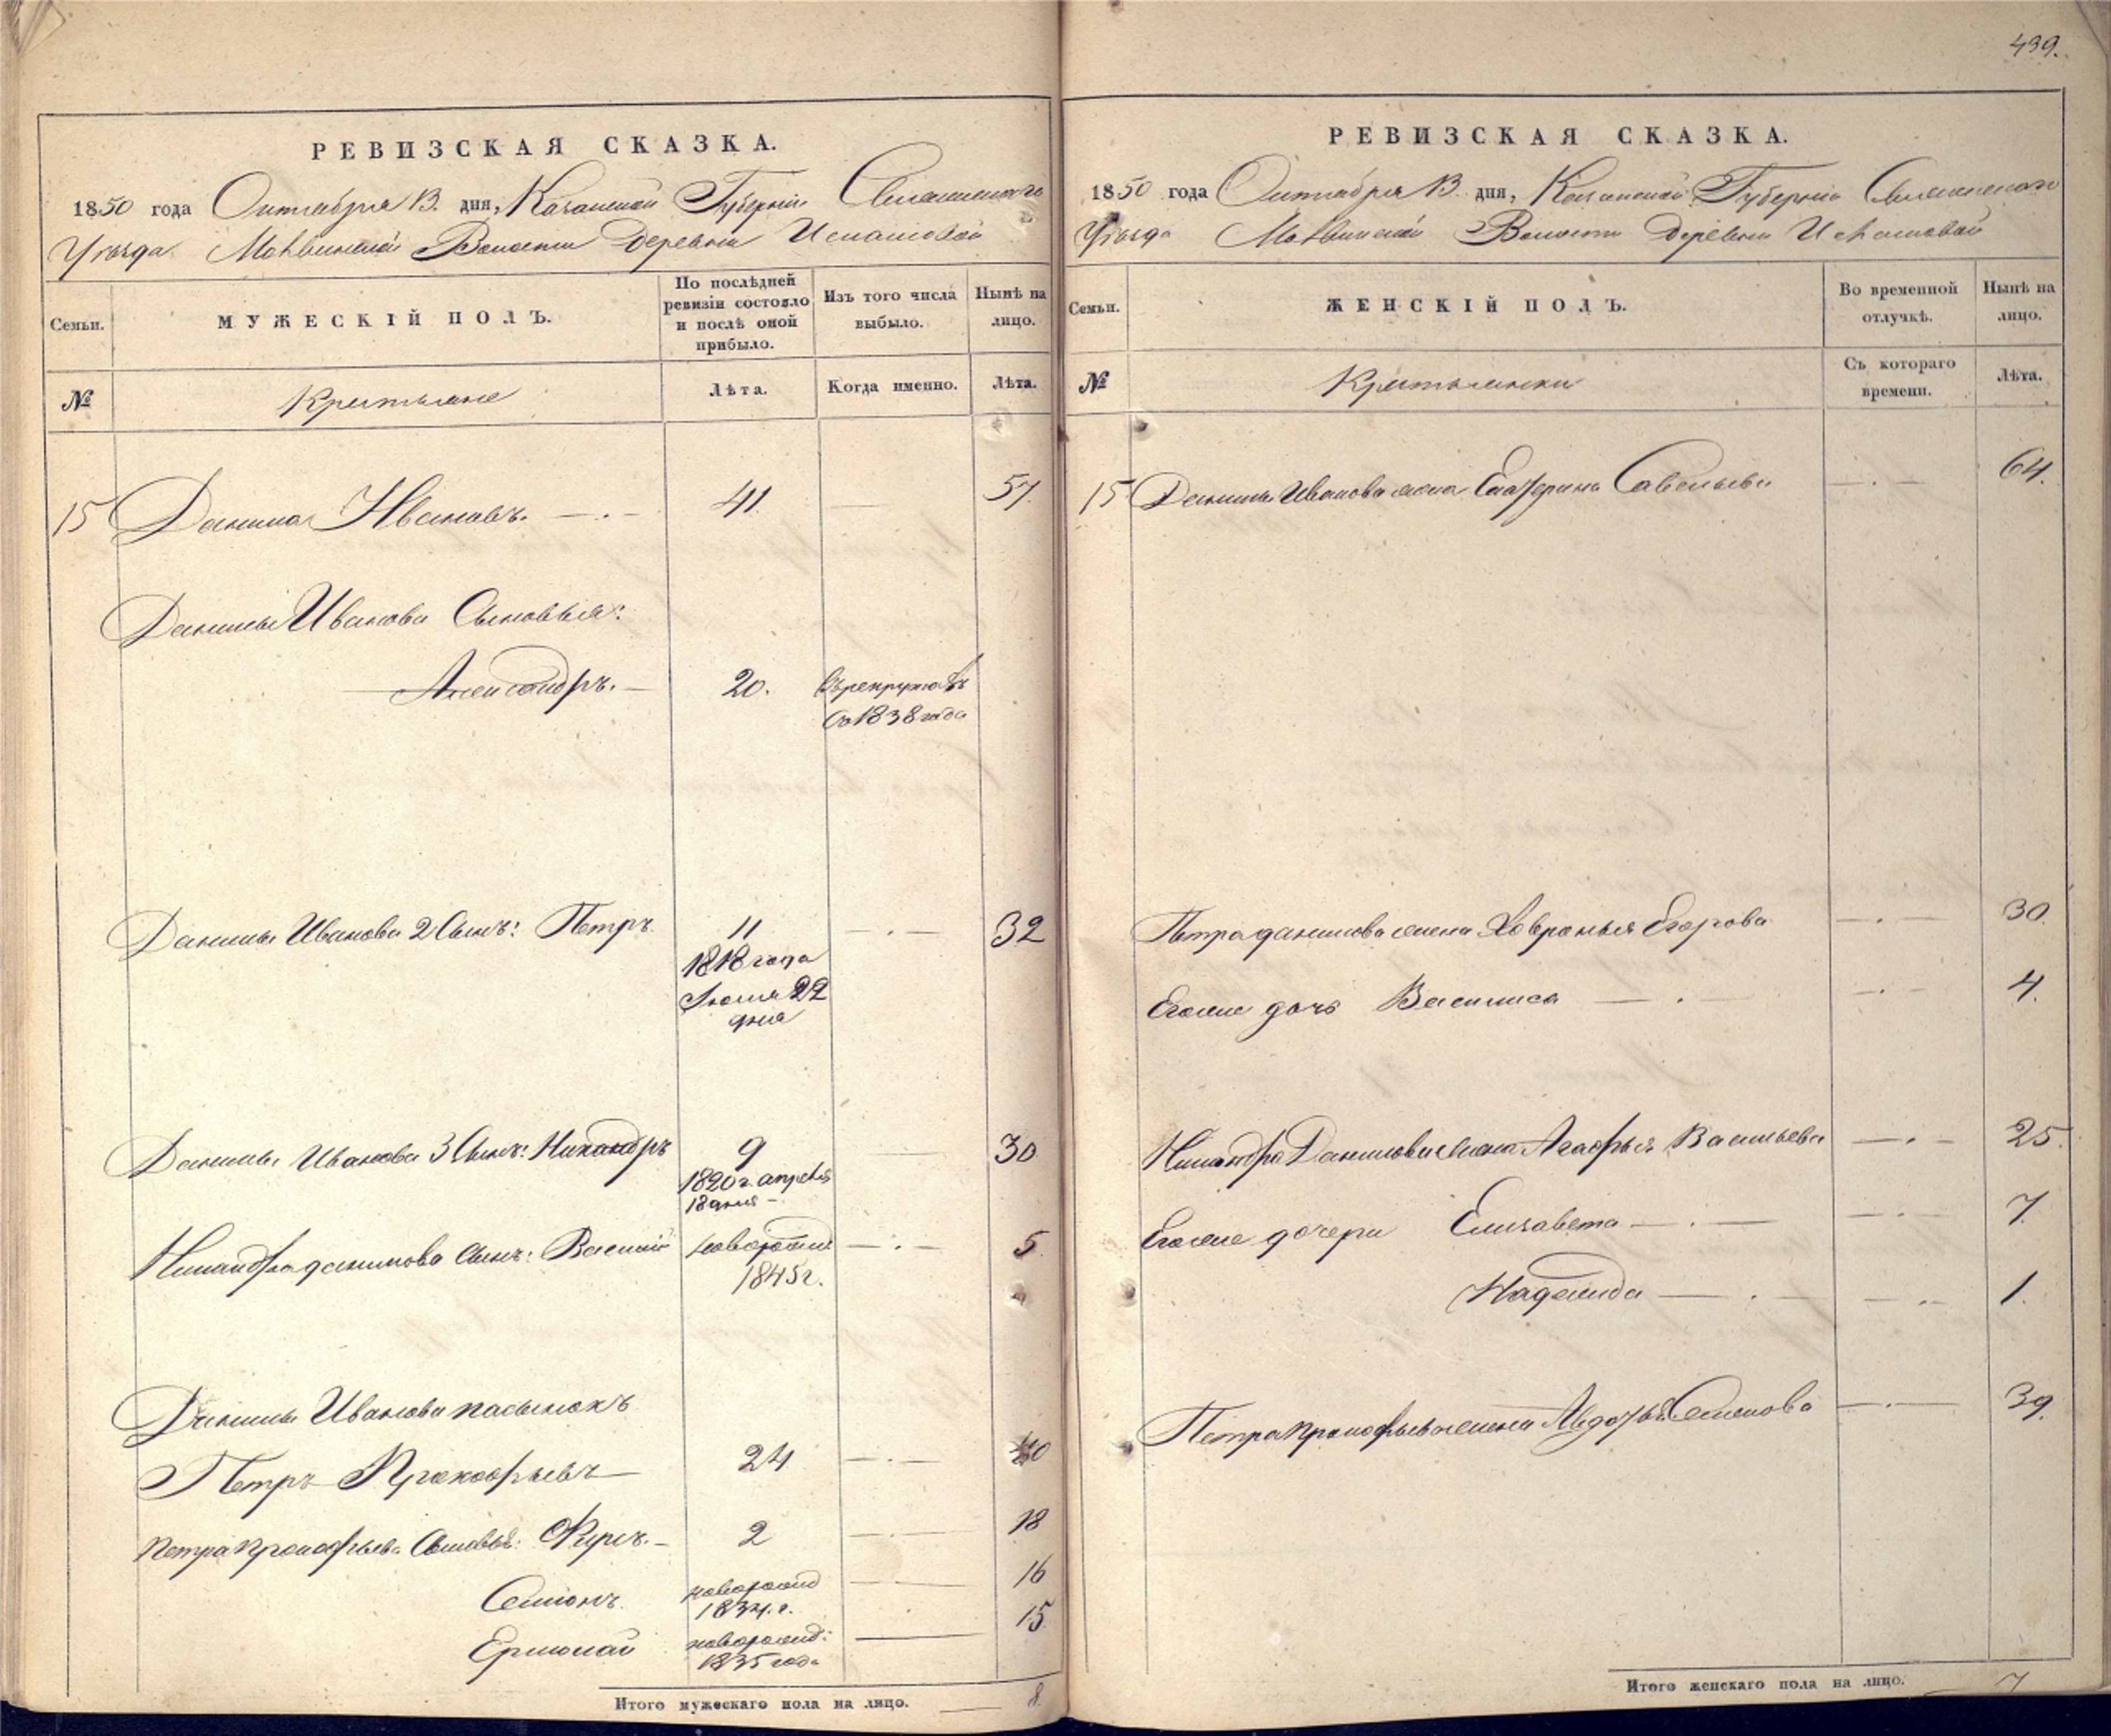 439.
РЕВИЗСКАЯ СКАЗКА.
1850 года Октября 13. дня, Казанской Губернiи
Уѣзда Волости Деревни
Семьи.
МУЖЕСКIЙ ПОЛЪ.
По послѣдней
ревизiи состояло
и послѣ оной
прибыло.
Изъ того числа
выбыло.
Нынѣ на
лицо.
№
Крестьяне
Лѣта.
Когда именно.
Лѣта.
15 Данила Ивановъ. 41. 57.
Данилы Иванова Сыновья:
Александръ. 20. въ рекрутахъ
съ 1838 года
Данилы Иванова 2 Сынъ: Петръ 11 32
1818 года
22
дня
Данилы Иванова 3 Сынъ: Никандръ 9 30
1820 г. апрѣля
18 дня
Никандра данилова сынъ: Василiй новорожд 5.
1845 г.
Данилы Иванова пасынокъ
Петръ Прокофьевъ 24 40
Петра Прокофьева Сыновья: Фирсъ. 2 18
Семіонъ новорожд 16
1834. г.
Ермолай новорожд: 15
1835 года
Итого мужескаго пола на лицо. 8.
РЕВИЗСКАЯ СКАЗКА.
1850 года Октября 13 дня, Казанской Губернiи
Уѣзда Волости Деревни
Семьи.
ЖЕНСКIЙ ПОЛЪ.
Во временной
отлучкѣ.
Нынѣ на
лицо.
№
Крестьянки
Съ котораго
времени.
Лѣта.
15 Данилы Иванова жена Екатерина Савельева 64.
Петра данилова жена Хавронья Егорова 30.
Егоже дочь Василиса 4.
Никандра Данилова жена Агафья Васильева 25.
Егоже дочери Елизавета 7.
Надежда 1.
Петра Прокофьева жена Авдотья Семенова 39.
Итого женскаго пола на лицо. 7